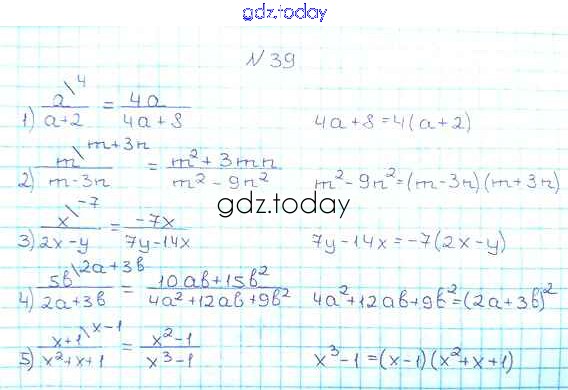 gdz.today
N 39
1) a\4 / a+2 = 4a / 4a+8    4a+8=4(a+2)
2) m\m+3n / m-3n = m²+3mn / m²-9n²    m²-9n²=(m-3n)(m+3n)
gdz.today
3) x\-7 / 2x-y = -7x / 7y-14x    7y-14x=-7(2x-y)
4) 5b\2a+3b / 2a+3b = 10ab+15b² / 4a²+12ab+9b²    4a²+12ab+9b²=(2a+3b)²
5) x+1\x-1 / x²+x+1 = x²-1 / x³-1    x³-1=(x-1)(x²+x+1)